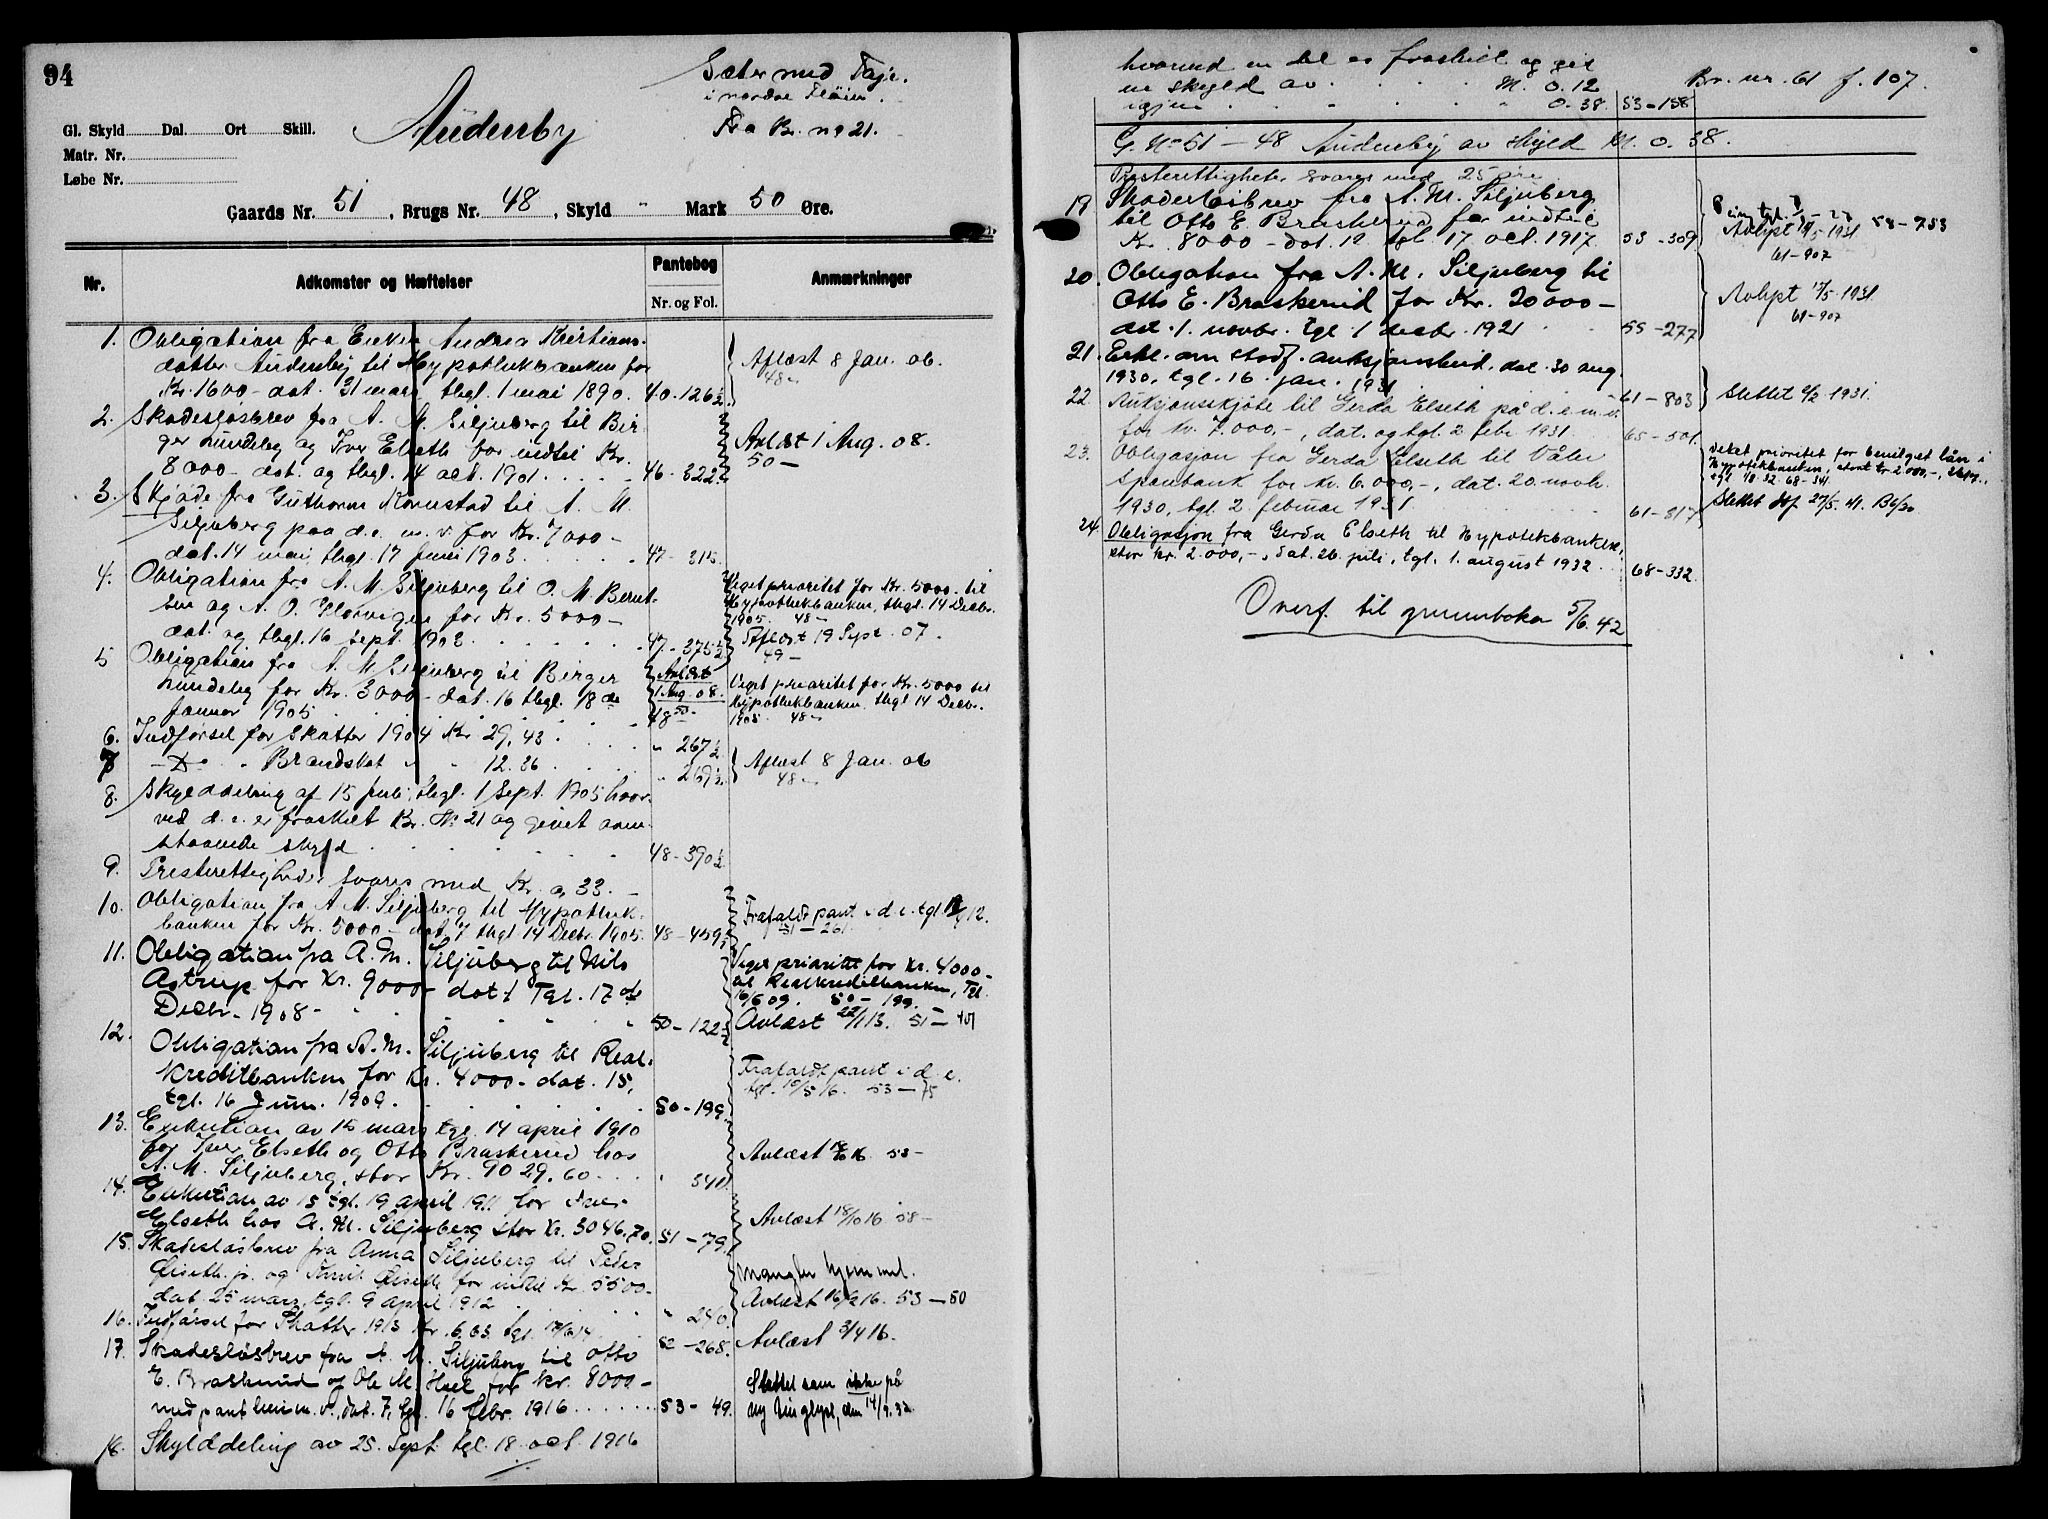 94
Audensby
Sæter med Taje.
i nordre Fløien.
Fra Br. no 21.
Gl. Skyld Dal. Ort Skill.
Matr. Nr.
Løbe Nr.
Gaards Nr. 51, Brugs Nr. 48, Skyld " Mark 50 Øre.
Nr. Adkomster og Hæftelser Pantebog Anmærkninger
Nr. og Fol.
1. Obligation fra Enken Andrea Kristians-
datter Audensby til Hypothekbanken for
Kr. 1600 - dat. 31 mars, thgl. 1 mai 1890. 40-126½
Aflæst 8 Jan. 06.
48-
2. Skadesløsbrev fra A. M. Siljuberg til Bir-
ger Lundeby og Iver Elseth for indtil Kr.
8000 - dat. og thgl. 14 oct. 1901. 46-322
Avlæst 1 Aug. 08.
50-
3. Skjøde fra Guthorm Kornstad til A. M.
Siljuberg paa d.e. m. v. for Kr. 7000 -
dat. 14 mai, thgl. 17 Juni 1903. 47-315
4. Obligation fra A. M. Siljuberg til O. M. Bernt-
sen og A. O. for Kr. 5000 -
dat. og thgl. 16 Sept. 1903. 47-375½
Veget prioritet for Kr. 5000. til
Hypothekbanken, thgl. 14 Decbr.
1905. 48-
Aflæst 19 Sept. 07.
49-
5 Obligation fra A. M. Siljuberg til Birger
Lundeby for Kr. 3000 - dat. 16 thgl. 18 de
Januar 1905 48
Avlæst
1 Aug. 08.
50-
Veget prioritet for Kr. 5000 til
Hypothekbanken, thgl 14 Decbr.
1905. 48-
6. Indførsel for Skatter 1904 Kr. 29,43 " 267½
7 - Do - " Brandskat " " 12.36 " 269½
Aflæst 8 Jan. 06
48-
8. Skylddeling af 15 juli, thgl. 1 Sept. 1905 hvor-
ved d. e. er fraskilt Br. No 21 og givet oven-
staaende skyld 48-390½
9. Presterettigheder svares med Kr. 0,33. -
10. Obligation fra A M. Siljuberg til Hypothek-
banken for Kr. 5000 - dat. 7 thgl 14 Decbr. 1905. 48-459½
Frafaldt pant i d.e. tgl. 12.
51-261
11. Obligation fra A. M. Siljuberg til Nils
Astrup for Kr. 9000 - dat. 1 Tgl. 17 de
Decbr. 1908 - 50-122
Veget prioritet for Kr. 4000 -
til Realkreditbanken, Tgl.
16/6 09. 50-199.
Avlæst 22/1 13. 51-401
12. Obligation fra A. M. Siljuberg til Real-
kreditbanken for Kr. 4000 - dat. 15,
tgl. 16 Juni. 1909. 50-199.
Frafaldt pant i d. e.
tgl. 10/5 16. 53-75
13. Exekution av 15 mars tgl. 14 april 1910
for Iver Elseth og Otto Braskerud hos
A. M. Siljuberg, stor Kr. 9029,60. " 341.
Avlæst 16. 53-
14. Exekution av 15 tgl. 19 april 1911 for Iver
Elseth hos A. M. Siljuberg stor Kr. 3046,70. 51-79.
Avlæst 18/10 16 53-
15. Skadesløsbrev fra Anna Siljuberg til Peder
Øiseth jr. og Knut Øiseth for indtil Kr 5500 -
dat. 25 mars, tgl. 9 april 1912 " 240.
mangler hjemmel.
Avlæst 16/2 16. 53-50
16. Indførsel for Skatter 1913 Kr. 6,63. tgl. 14. 52-268.
Avlæst 3/4 16.
17. Skadesløsbrev fra A. M. Siljuberg til Otto
E. Braskerud og Ole M. Hoel for Kr. 8000 -
med pant i d.e. m. v., dat. 7, tgl. 16 febr. 1916 53-49.
Slettet som ikke på
ny tinglyst, den 14/9.32
18. Skylddeling av 25. Sept. tgl. 18. oct. 1916
hvorved en del er fraskilt og git
en skyld av M. 0.12 Br. nr. 61 f. 107.
igjen " 0.38. 53-158
G. No 51 - 48 Audensby av skyld M. 0.38.
Presterettigheter svares med 25 øre
19 Skadesløsbrev fra A. M. Siljuberg
til Otto E. Braskerud for indtil
Kr. 8000 - dat. 12 tgl. 17 oct. 1917. 53-309
58-753
Avlyst 1931.
61-907
20. Obligation fra A. M. Siljuberg til
Otto E. Braskerud for Kr. 20000 -
dat. 1. novbr. tgl. 1 desbr. 1921 55-277
Avlyst 1931.
61-907
21. Erkl. om stadf. auksjonsbud, dat. 30 aug.
1930, tgl. 16. jan. 1931 61-803
Slettet 1931.
22. Auksjonsskjøte til Gerda Elseth på d. e. m. v.
for kr. 7.000,-, dat. og tgl. 2 febr 1931 65-501.
23. Obligasjon fra Gerda Elseth til Våler
Sparebank for kr. 6.000,-, dat. 20. novb.
1930, tgl. 2. februar 1931 61-817
Veket prioritet for bevilget lån i
Hypotekbanken, stort kr 2.000,-,
tgl. 68-341
Slettet 27/5. 41.
24. Obligasjon fra Gerda Elseth til Hypotekbanken,
stor kr. 2.000,-, dat. 26. juli, tgl. 1. august 1932 68-332
Overf. til grunnboka 5/6.42